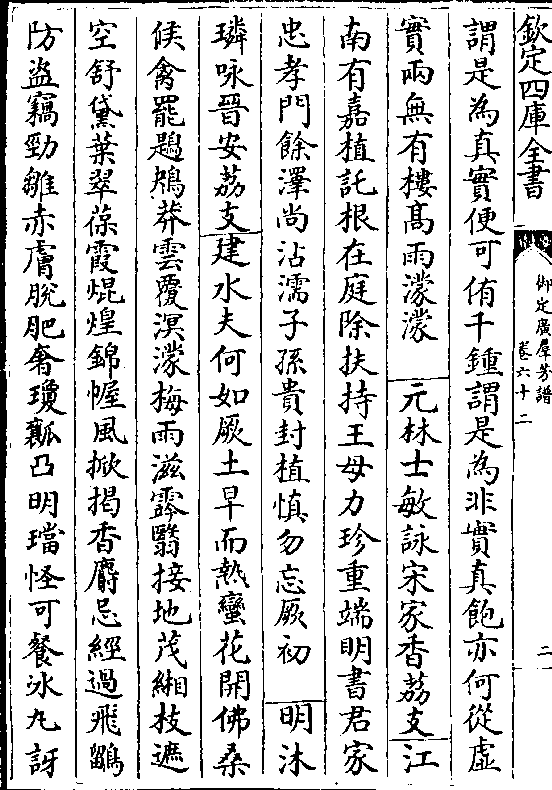 欽定四庫全書
御定廣羣芳譜
卷六十二
二
謂是為真實便可侑千鍾謂是為非實真飽亦何從虛
實兩無有樓髙雨濛濛 元林士敏詠宋家香荔支江
南有嘉植託根在庭除扶持王母力珍重端明書君家
忠孝門餘澤尚沾濡子孫貴封植慎勿忘厥初 明沐
璘咏晉安荔支建水夫何如厥土早而熱蠻花開佛桑
候禽罷鶗鴂莽雲覆溟濛梅雨滋霢翳接地茂緗枝遮
空舒黛葉翠葆霞焜煌錦幄風掀揭香麝忌經過飛鸓
防盜竊勁雛赤膚脫肥奢瓊瓤凸明璫怪可餐冰丸訝